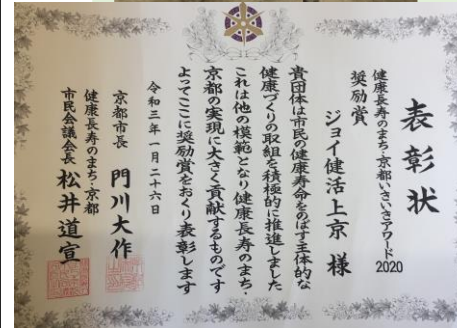 表彰状
健康長寿のまち・京都いきいきアワード2020
奨励賞
ジョイ健活上京 様
貴団体は市民の健康寿命をのばす主体的な
健康づくりの取組を積極的に推進しました
これは他の模範となり健康長寿のまち・
京都の実現に大きく貢献するものです
よってここに奨励賞をおくり表彰します
令和三年一月二十六日
京都市長 門川大作
健康長寿のまち・京都
市民会議会長 松井道宣